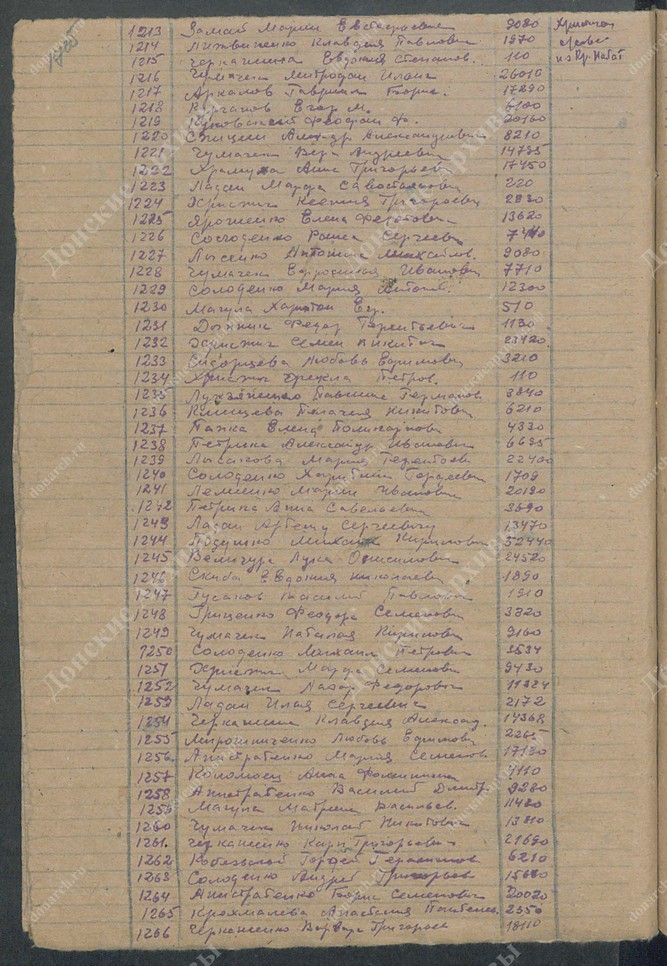 1213 Марии 9080
1214 Литвиненко Клавдия Павловн 1970
1215 Черкашина Евдокия Степанов. 110 из Кр. Набат
1216 Чумачен Митрофан 26010
1217 Гаврил Борис. 17290
1218 Курганов Егор М. 6100
1219 Феофан Ф. 20160
1220 Александр Александрович 8210
1221 Чумаченко Вера Андреевн 14735
1222 Храмуха Анна Григорьев 17450
1223 Ладан Марфа 220
1224 Христич Ксения Григорьевн 2830
1225 Ярошенко Елена Федотовн 13620
1226 Раиса Сергеевн
1227 Лысенко Антонина Михайлов. 9080
1228 Чумаченко Ефросиния Ивановн 7710
1229 Солоденко Мария Антонов. 12300
1230 Магула Харитон Ег. 510
1231 Должник Федор Терентьевич 1130
1232 Христич Семен Никитич 23420
1233 Сидорцева Любовь Ефимовн 3210
1234 Христич Петров. 110
1235 Германов 3840
1236 Клинцева Пелагея Никитовн 6210
1237 Папка Елена 4330
1238 Петрина Александр Иванович 6685
1239 Лысакова Мария Терентьев 22400
1240 Солоденко Харитина Гордеевн 1709
1241 Леменко Марии Ивановн 20190
1242 Петрина Анна Савельевн 3690
1243 Ладан Артему Сергеевичу 13470
1244 Подушко Михаил Кириллович 52440
1245 Величура Лука Онисимович 24520
1246 Скиба Евдокия Николаевн 1890
1247 Гусаков Василий Павлович 1910
1248 Гриценко Феодора Семеновн 3320
1249 Чумачен Наталья Кириловн 9160
1250 Солоденко Михаил Петрович 3534
1251 Христич Марфа Семеновн 9430
1252 Чумачен Назар Федорович 11324
1253 Ладан Илья Сергеевич 2172
1254 Черкашина Клавдия Александ. 14368
1255 Мирошниченко Любовь Ефимовн 2265
1256 Анистратенко Мария Семенов 17130
1257 Коломоец Анна 9110
1258 Анистратенко Василий Дмитр. 9280
1259 Магула Матрена Васильев. 11480
1260 Чумачен Николай Никитович 13810
1261 Черкашенко Карп Григорьевич 21690
1262 Герасимов 6210
1263 Солоденко Андрей Григорьев 15680
1264 Анистратенко Борис Семенович 20020
1265 Крохмалева Анастасия Пантелее. 2350
1266 Черкашенко Варвара Григорьев 18110